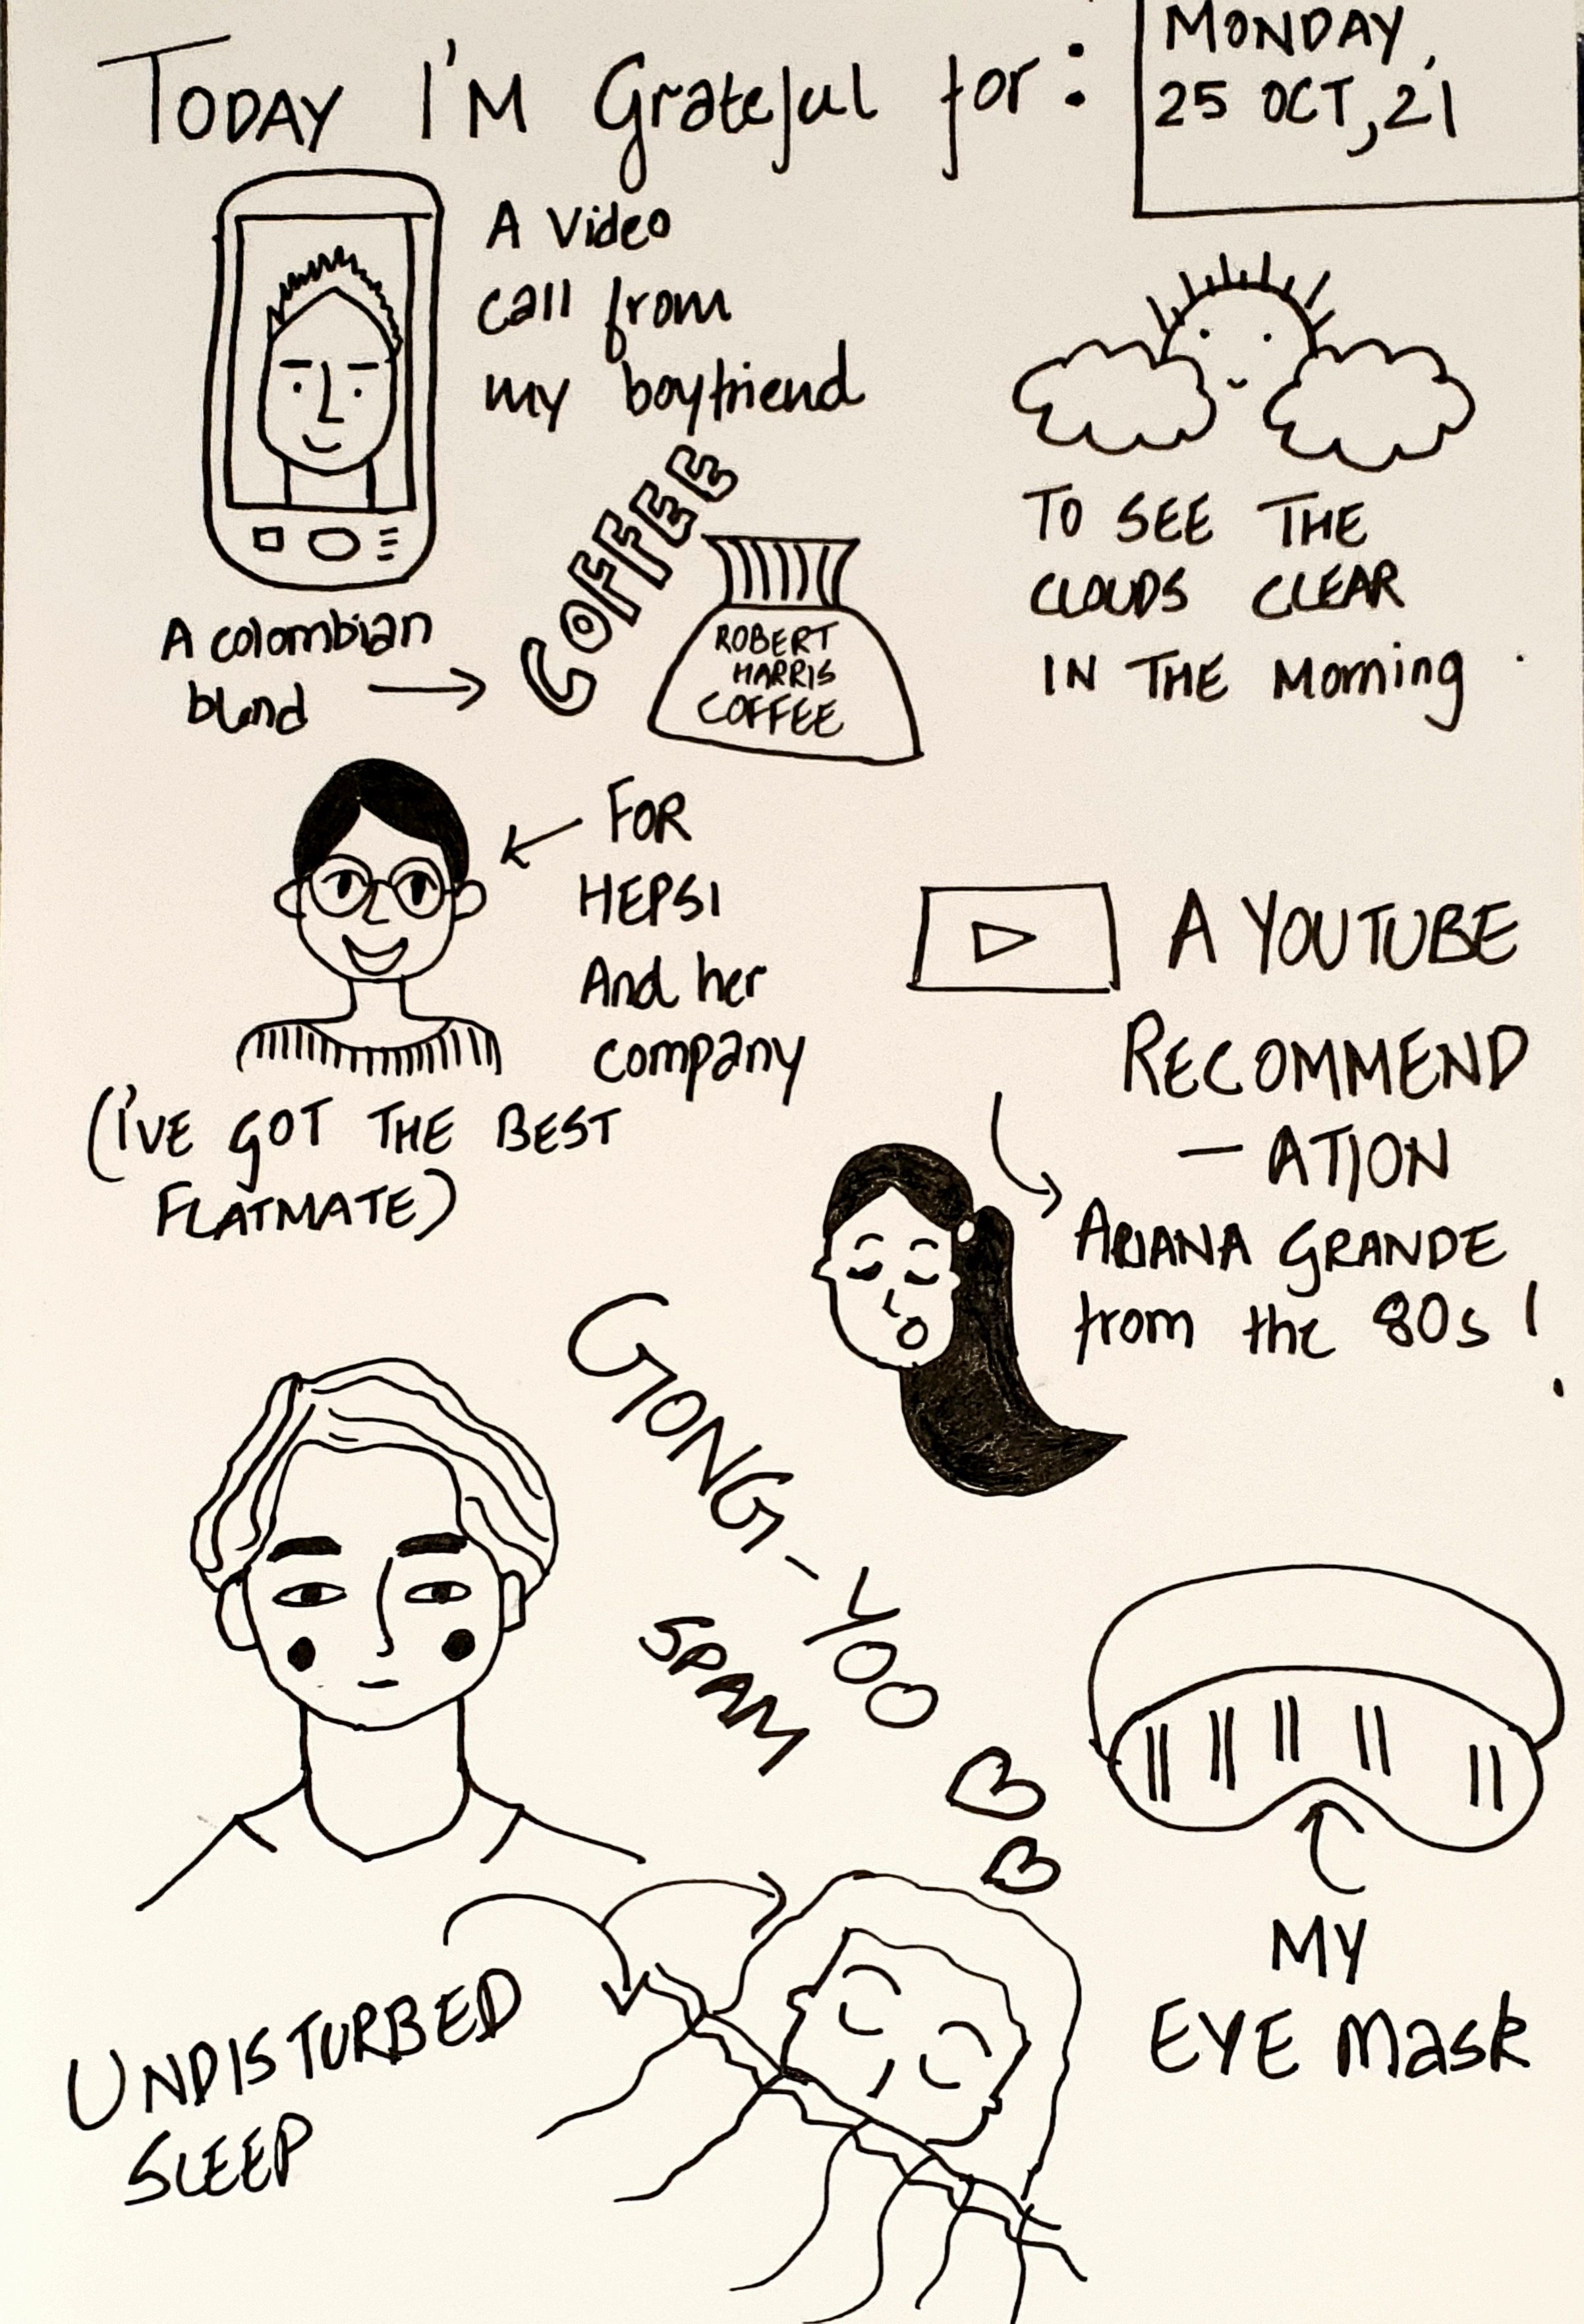 TODAY I'M Grateful for:
MONDAY,
25 OCT, 21
A Video
call from
my boyfriend
TO SEE THE
CLOUDS CLEAR
IN THE Morning.
COFFEE
A colombian
blend
ROBERT
HARRIS
COFFEE
FOR
HEPSI
And her
company
(I'VE GOT THE BEST
FLATMATE)
A YOUTUBE
RECOMMEND
-ATION
ARIANA GRANDE
from the 80s!
GONG-YOO
SPAM
MY
EYE Mask
UNDISTURBED
SLEEP